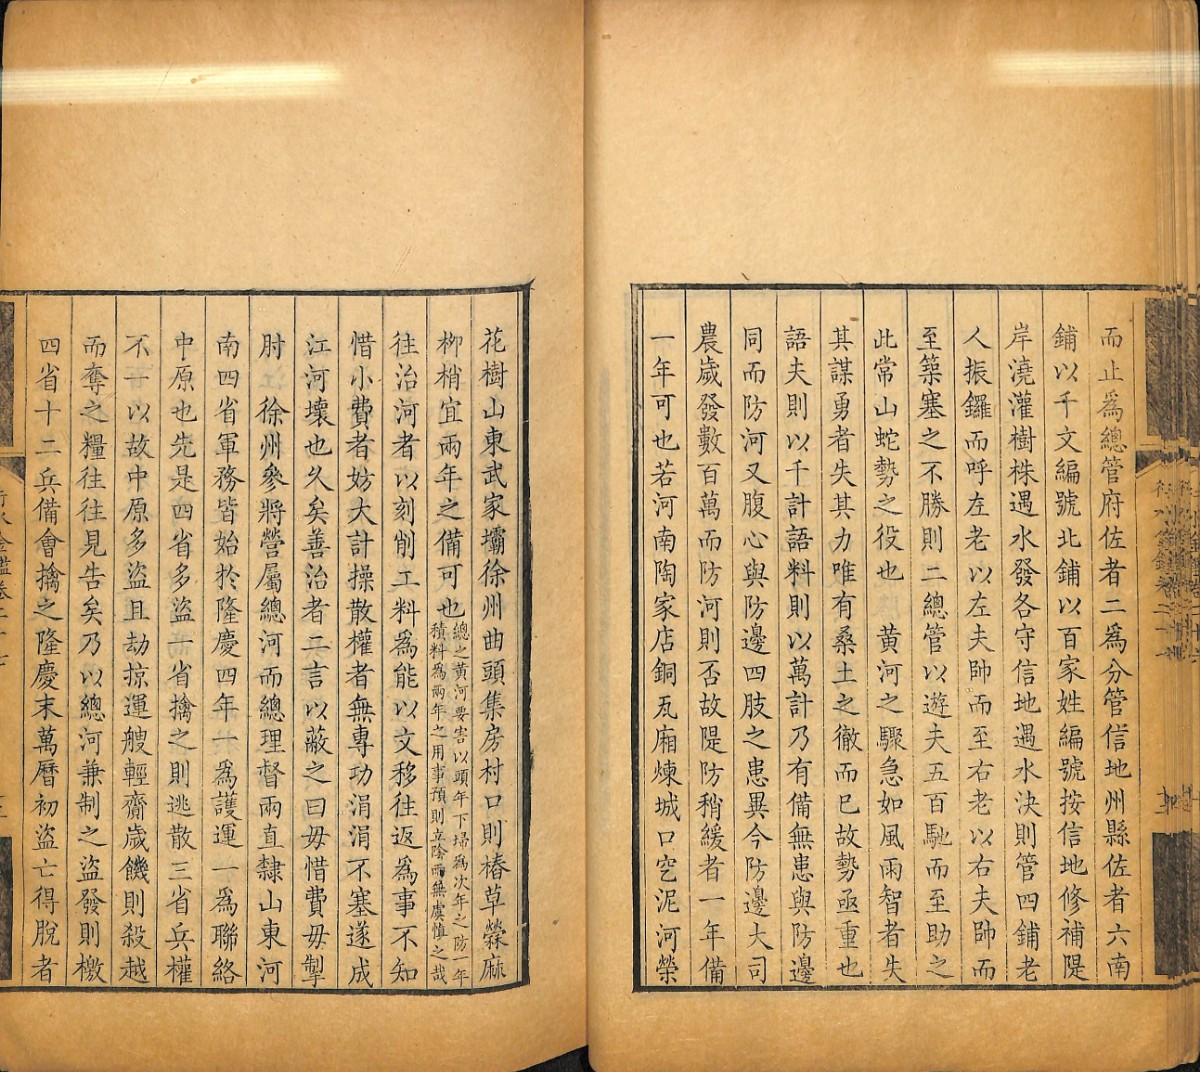 而止爲總管府佐者二爲分管信地州縣佐者六南
鋪以千文編號北鋪以百家姓編號按信地修補隄
岸澆灌樹株遇水發各守信地遇水決則管四鋪老
人振鑼而呼左老以左夫帥而至右老以右夫帥而
至築塞之不勝則二總管以遊夫五百馳而至助之
此常山蛇勢之役也　黄河之驟急如風雨智者失
其謀勇者失其力唯有桑土之徹而已故勢亟重也
語夫則以千計語料則以萬計乃有備無患與防邊
同而防河又腹心與防邊四肢之患異今防邊大司
農歲發數百萬而防河則否故隄防稍緩者一年備
一年可也若河南陶家店銅瓦廂煉城口空泥河榮
花樹山東武家壩徐州曲頭集房村口則樁草檾麻
柳梢宜兩年之備可也總之黄河要害以頭年下埽爲次年之防一年
積料爲兩年之用事預則立陰雨無虞愼之哉
往治河者以刻削工料爲能以文移往返爲事不知
惜小費者妨大計操散權者無專功涓涓不塞遂成
江河壞也久矣善治者二言以蔽之曰毋惜費毋掣
肘　徐州參將營屬總河而總理督兩直隸山東河
南四省軍務皆始於隆慶四年一爲護運一爲聯絡
中原也先是四省多盜一省擒之則逃散三省兵權
不一以故中原多盜且劫掠運艘輕齎歲饑則殺越
而奪之糧往往見告矣乃以總河兼制之盜發則檄
四省十二兵備會擒之隆慶末萬曆初盜亡得脫者